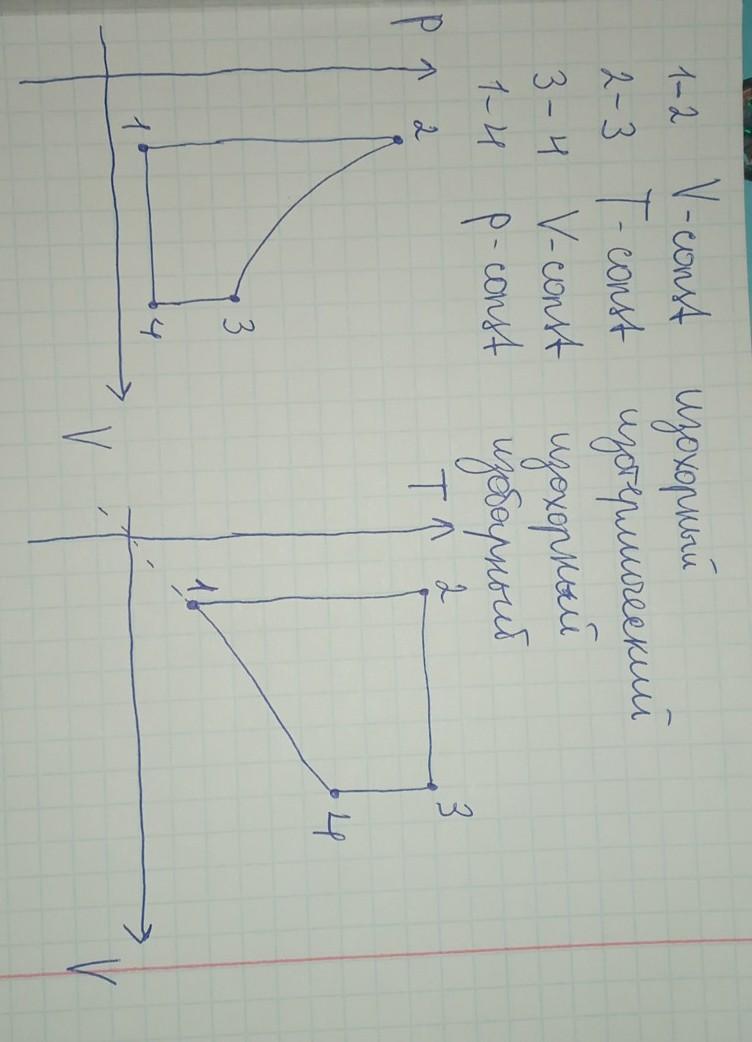 1-2 V-const изохорный
2-3 T-const изотермический
3-4 V-const изохорный
1-4 P-const изобарный
P
2
3
1
4
V
T
2
3
4
1
V